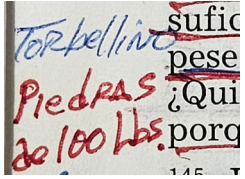 Torbellino
Piedras
de 100 Lbs.
sufic
pese
¿Qui
porq
145